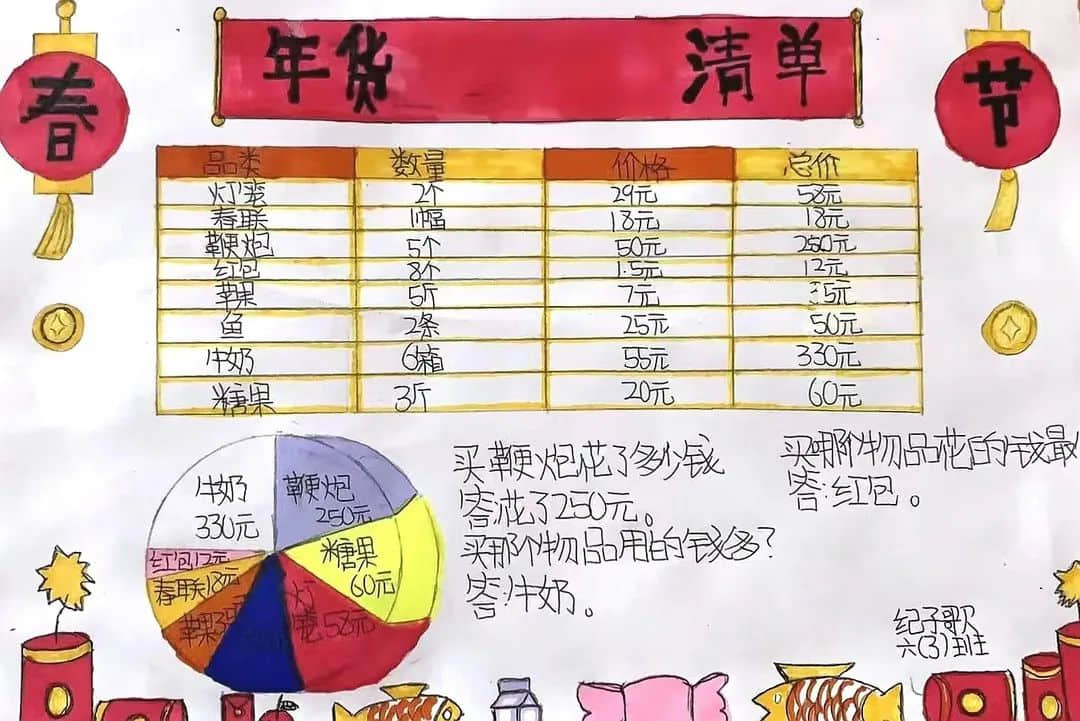 春
年货 清单
节
品类 数量 价格 总价
灯笼 2个 29元 58元
春联 1幅 18元 18元
鞭炮 5个 50元 250元
红包 8个 1.5元 12元
苹果 5斤 7元 35元
鱼 2条 25元 50元
牛奶 6箱 55元 330元
糖果 3斤 20元 60元
牛奶
330元
鞭炮
250元
糖果
60元
红包12元
春联18元
苹果35元
灯
笼58元
买鞭炮花了多少钱
答:花了250元。
买那个物品用的钱多?
答:牛奶。
买哪个物品花的钱最
答:红包。
纪子歌
六(3)班